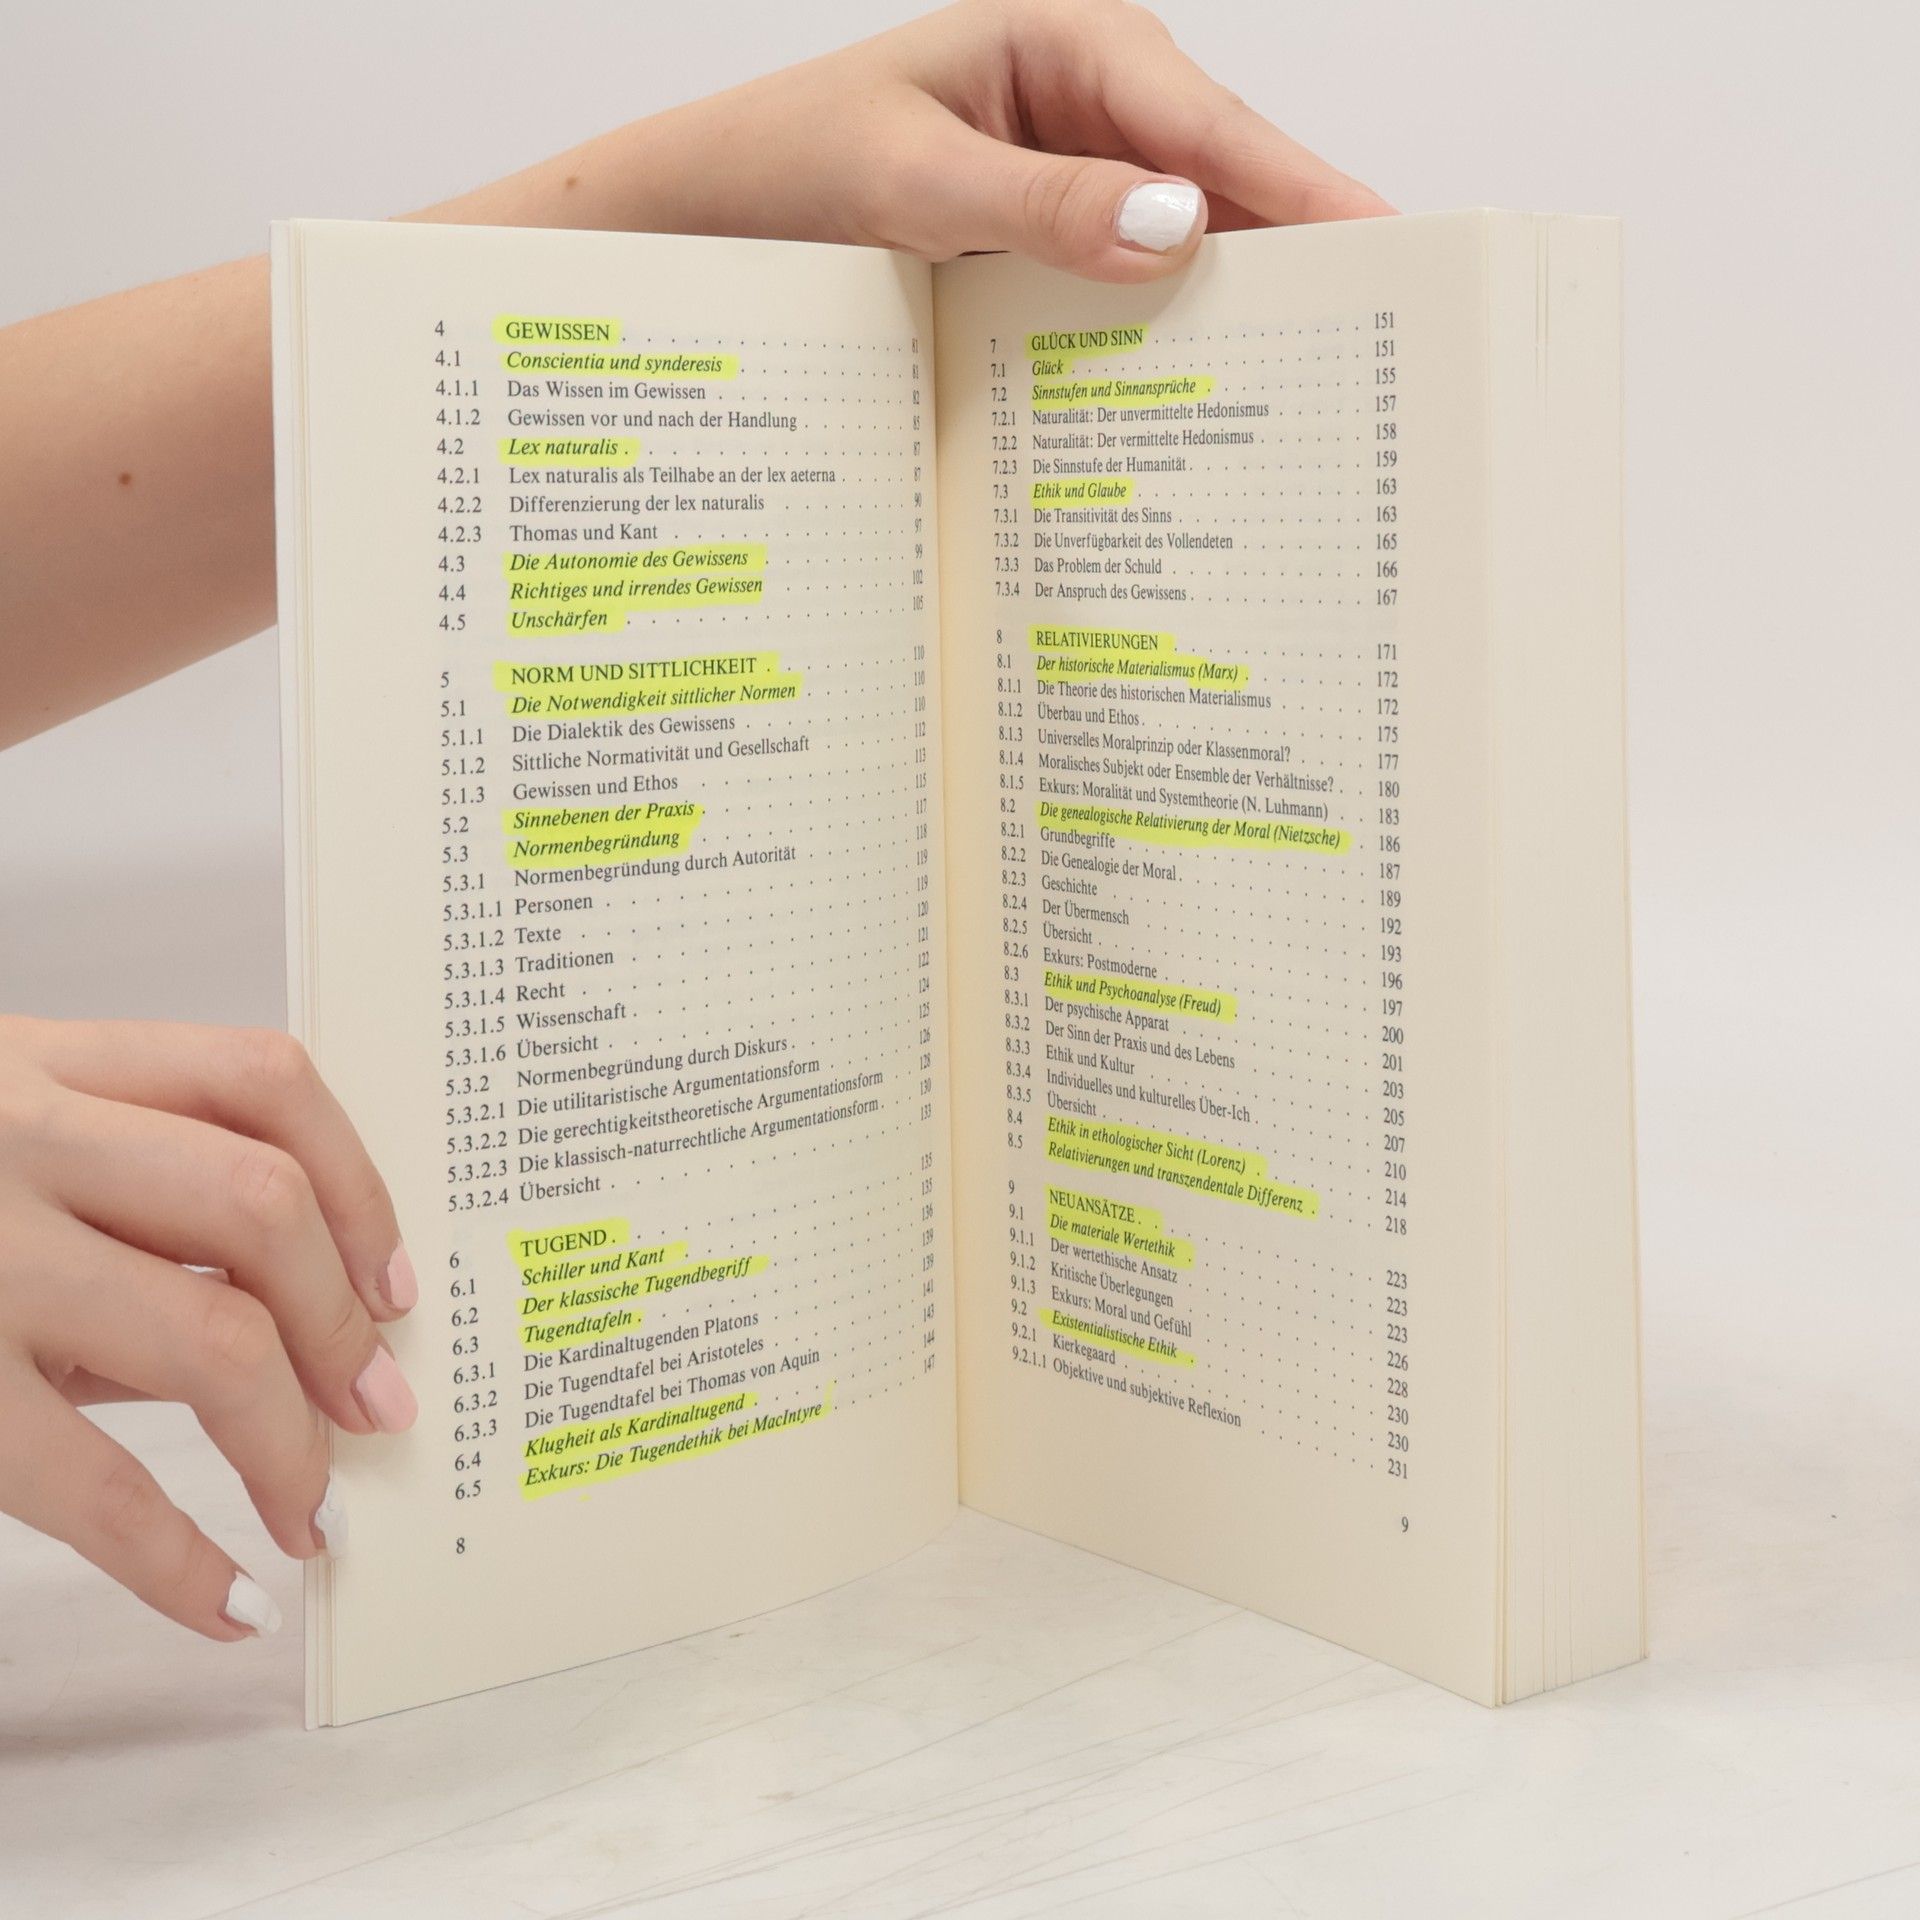 4 GEWISSEN . . . . . . . . . . . . . 81
4.1 Conscientia und synderesis . . . . . . . . 81
4.1.1 Das Wissen im Gewissen . . . . . . . . . 82
4.1.2 Gewissen vor und nach der Handlung . . . . . 85
4.2 Lex naturalis . . . . . . . . . . . . . 87
4.2.1 Lex naturalis als Teilhabe an der lex aeterna . . . . 87
4.2.2 Differenzierung der lex naturalis . . . . . . 90
4.2.3 Thomas und Kant . . . . . . . . . . . 97
4.3 Die Autonomie des Gewissens . . . . . . . 99
4.4 Richtiges und irrendes Gewissen . . . . . . 102
4.5 Unschärfen . . . . . . . . . . . . . 105
5 NORM UND SITTLICHKEIT . . . . . . . 110
5.1 Die Notwendigkeit sittlicher Normen . . . . . 110
5.1.1 Die Dialektik des Gewissens . . . . . . . . 110
5.1.2 Sittliche Normativität und Gesellschaft . . . . . 112
5.1.3 Gewissen und Ethos . . . . . . . . . . 113
5.2 Sinnebenen der Praxis . . . . . . . . . . 115
5.3 Normenbegründung . . . . . . . . . . 117
5.3.1 Normenbegründung durch Autorität . . . . . 118
5.3.1.1 Personen . . . . . . . . . . . . . . 119
5.3.1.2 Texte . . . . . . . . . . . . . . . 119
5.3.1.3 Traditionen . . . . . . . . . . . . . 120
5.3.1.4 Recht . . . . . . . . . . . . . . . 121
5.3.1.5 Wissenschaft . . . . . . . . . . . . . 122
5.3.1.6 Übersicht . . . . . . . . . . . . . . 124
5.3.2 Normenbegründung durch Diskurs . . . . . . 125
5.3.2.1 Die utilitaristische Argumentationsform . . . . . 126
5.3.2.2 Die gerechtigkeitstheoretische Argumentationsform . . 128
5.3.2.3 Die klassisch-naturrechtliche Argumentationsform . . . 130
5.3.2.4 Übersicht . . . . . . . . . . . . . . 133
6 TUGEND . . . . . . . . . . . . . . 135
6.1 Schiller und Kant . . . . . . . . . . . 135
6.2 Der klassische Tugendbegriff . . . . . . . 136
6.3 Tugendtafeln . . . . . . . . . . . . . 139
6.3.1 Die Kardinaltugenden Platons . . . . . . . 139
6.3.2 Die Tugendtafel bei Aristoteles . . . . . . . 141
6.3.3 Die Tugendtafel bei Thomas von Aquin . . . . . 143
6.4 Klugheit als Kardinaltugend . . . . . . . . 144
6.5 Exkurs: Die Tugendethik bei MacIntyre . . . . . 147
8
7 GLÜCK UND SINN . . . . . . . . . . 151
7.1 Glück . . . . . . . . . . . . . . 151
7.2 Sinnstufen und Sinnansprüche . . . . . . . 155
7.2.1 Naturalität: Der unvermittelte Hedonismus . . . . 157
7.2.2 Naturalität: Der vermittelte Hedonismus . . . . . 158
7.2.3 Die Sinnstufe der Humanität . . . . . . . . 159
7.3 Ethik und Glaube . . . . . . . . . . . 163
7.3.1 Die Transitivität des Sinns . . . . . . . . . 163
7.3.2 Die Unverfügbarkeit des Vollendeten . . . . . . 165
7.3.3 Das Problem der Schuld . . . . . . . . . 166
7.3.4 Der Anspruch des Gewissens . . . . . . . . 167
8 RELATIVIERUNGEN . . . . . . . . . 171
8.1 Der historische Materialismus (Marx) . . . . . . 172
8.1.1 Die Theorie des historischen Materialismus . . . . 172
8.1.2 Überbau und Ethos . . . . . . . . . . . 175
8.1.3 Universelles Moralprinzip oder Klassenmoral? . . . . 177
8.1.4 Moralisches Subjekt oder Ensemble der Verhältnisse? . . 180
8.1.5 Exkurs: Moralität und Systemtheorie (N. Luhmann) . . 183
8.2 Die genealogische Relativierung der Moral (Nietzsche) . 186
8.2.1 Grundbegriffe . . . . . . . . . . . . 187
8.2.2 Die Genealogie der Moral . . . . . . . . . 189
8.2.3 Geschichte . . . . . . . . . . . . . 192
8.2.4 Der Übermensch . . . . . . . . . . . 193
8.2.5 Übersicht . . . . . . . . . . . . . 196
8.2.6 Exkurs: Postmoderne . . . . . . . . . . 197
8.3 Ethik und Psychoanalyse (Freud) . . . . . . . 200
8.3.1 Der psychische Apparat . . . . . . . . . 201
8.3.2 Der Sinn der Praxis und des Lebens . . . . . . 203
8.3.3 Ethik und Kultur . . . . . . . . . . . 205
8.3.4 Individuelles und kulturelles Über-Ich . . . . . . 207
8.3.5 Übersicht . . . . . . . . . . . . . 210
8.4 Ethik in ethologischer Sicht (Lorenz) . . . . . . 214
8.5 Relativierungen und transzendentale Differenz . . . . 218
9 NEUANSÄTZE . . . . . . . . . . . 223
9.1 Die materiale Wertethik . . . . . . . . . 223
9.1.1 Der wertethische Ansatz . . . . . . . . . 223
9.1.2 Kritische Überlegungen . . . . . . . . . 226
9.1.3 Exkurs: Moral und Gefühl . . . . . . . . 228
9.2 Existentialistische Ethik . . . . . . . . . 230
9.2.1 Kierkegaard . . . . . . . . . . . . 230
9.2.1.1 Objektive und subjektive Reflexion . . . . . . 231
9